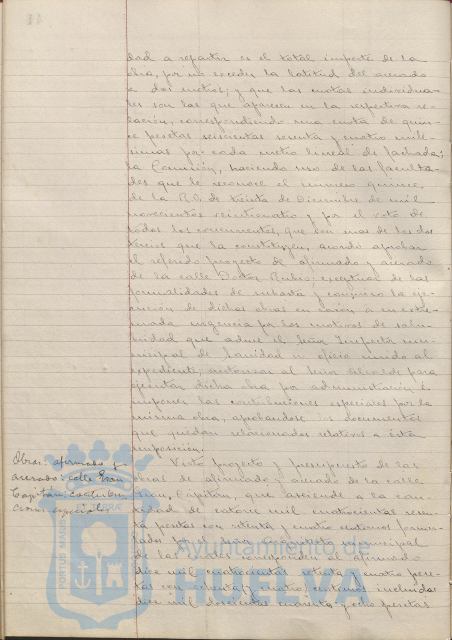 dad a repartir es el total importe de la
obra, por no exceder la latitud del acerado
a dos metros; y que las cuotas individua-
les son las que aparecen en la respectiva re-
lación, correspondiendo una cuota de quin-
ce pesetas seiscientas sesenta y cuatro milé-
simas por cada metro lineal de fachada;
la Comisión, haciendo uso de las faculta-
des que le reconoce el número quince,
de la R.O. de treinta de Diciembre de mil
novecientos veinticuatro y por el voto de
todos los concurrentes, que son mas de los dos
tercios que la constituyen, acordó aprobar
el referido proyecto de afirmado y acerado
de la calle Doctor Rubio; exceptuar de las
formalidades de subasta y concurso la eje-
cución de dichas obras en razón a su extre-
mada urgencia por los motivos de salu-
bridad que aduce el Señor Inspector mu-
nicipal de Sanidad en oficio unido al
expediente; autorizar al Señor Alcalde para
ejecutar dicha obra por administración é
imponer las contribuciones especiales por la
misma obra, aprobandose los documentos
que quedan relacionados relativos a ésta
imposición.
Obras: afirmado y
acerado: calle Gran
Capitán: contribu-
ciones especiales
Visto proyecto y presupuesto de las
obras de afirmado y acerado de la calle
Gran Capitán, que asciende a la can-
tidad de catorce mil cuatrocientas
pesetas con setenta y cuatro centimos formu-
lados por el Señor Arquitecto municipal
de las cuales corresponden al afirmado
doce mil cuatrocientas setenta y cuatro pese-
tas con ochenta y cuatro centimos incluidos
doce mil doscientas cuarenta y ocho pesetas
Ayuntamiento de
HUELVA
PORTUS MARIS